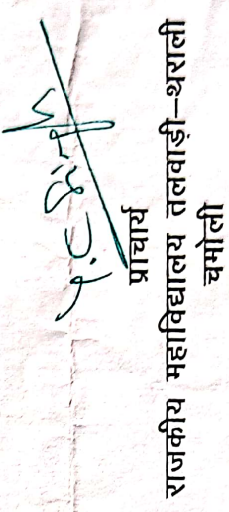 प्राचार्य
राजकीय महाविद्यालय तलवाड़ी-थराली
चमोली